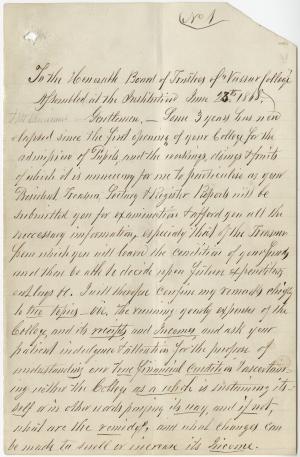 No 1
To the Honorable Board of Trustees of Vassar College
Assembled at the Institution June 23rd 1868,
Gentlemen, — Some 3 years has now
elapsed since the first opening of your College for the
admission of Pupils, and the workings, doings & fruits
of which it is unnecessary for me to particularise as your
President, Treasurer, & Register Reports will be
submitted you for examination & afford you all the
necessary information, especially that of the Treasurer
from which you will learn the condition of your funds,
and then be able to decide upon future expenditures
outlays &c. I will therefore confine my remarks chiefly
to two topics — viz. the running yearly expenses of the
College, and its receipts and Incomes and ask your
patient indulgence & attention for the purpose of
understanding our True Financial Condition & ascertain-
ing either the College as a whole is sustaining its-
self or in other words paying its way, and if not,
what are the remidys, and what changes can
be made to swell or increase its Income.